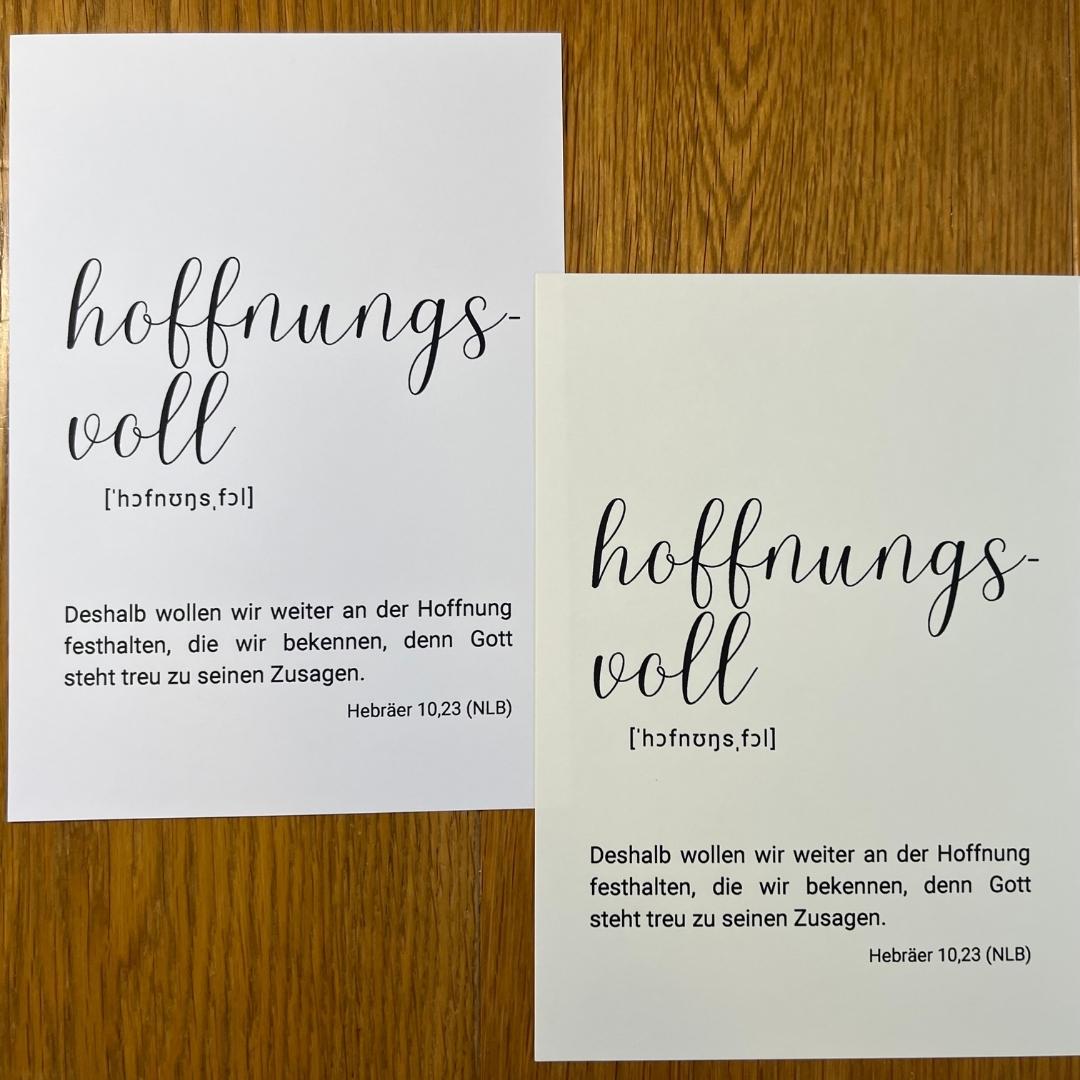 hoffnungs-
voll
[ˈhɔfnʊŋsˌfɔl]
Deshalb wollen wir weiter an der Hoffnung
festhalten, die wir bekennen, denn Gott
steht treu zu seinen Zusagen.
Hebräer 10,23 (NLB)
hoffnungs-
voll
[ˈhɔfnʊŋsˌfɔl]
Deshalb wollen wir weiter an der Hoffnung
festhalten, die wir bekennen, denn Gott
steht treu zu seinen Zusagen.
Hebräer 10,23 (NLB)